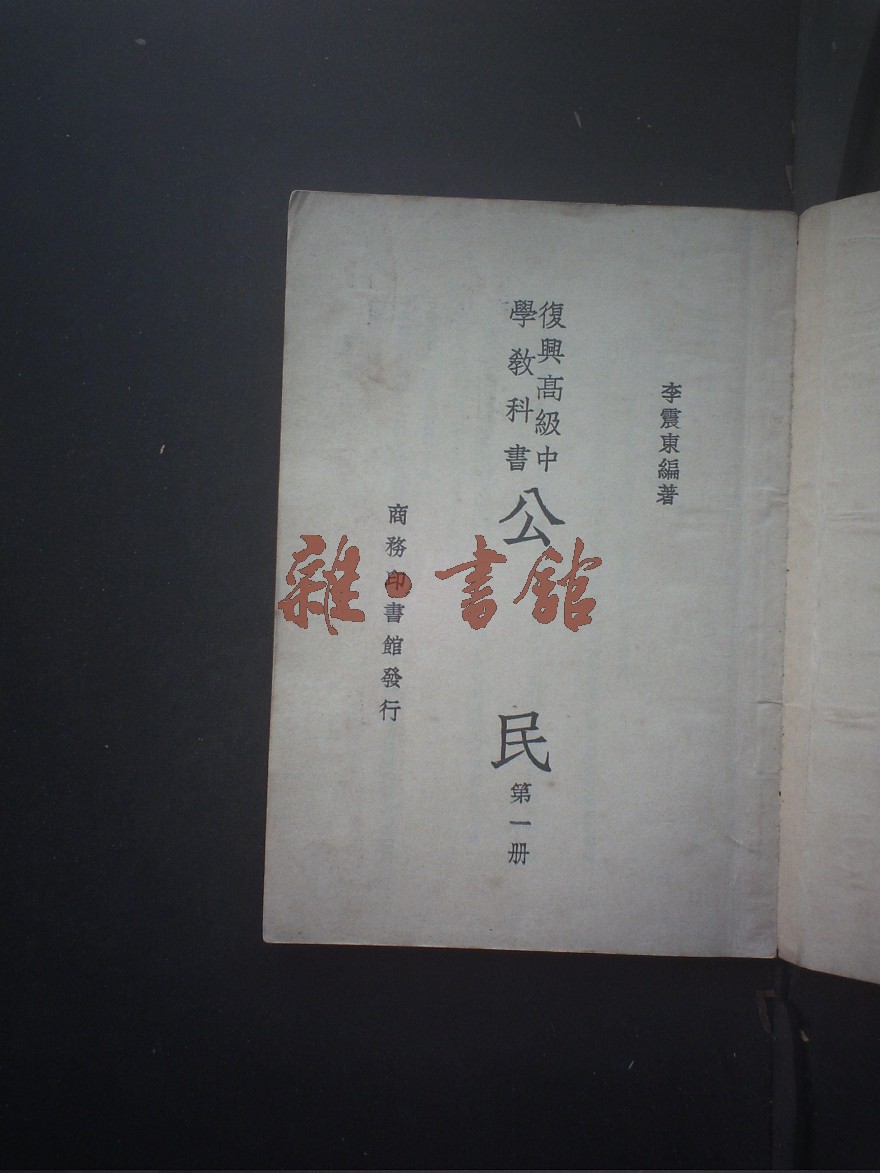 李震東編著
復興高級中
學教科書
公民
第一册
商務印書館發行
雜·書館